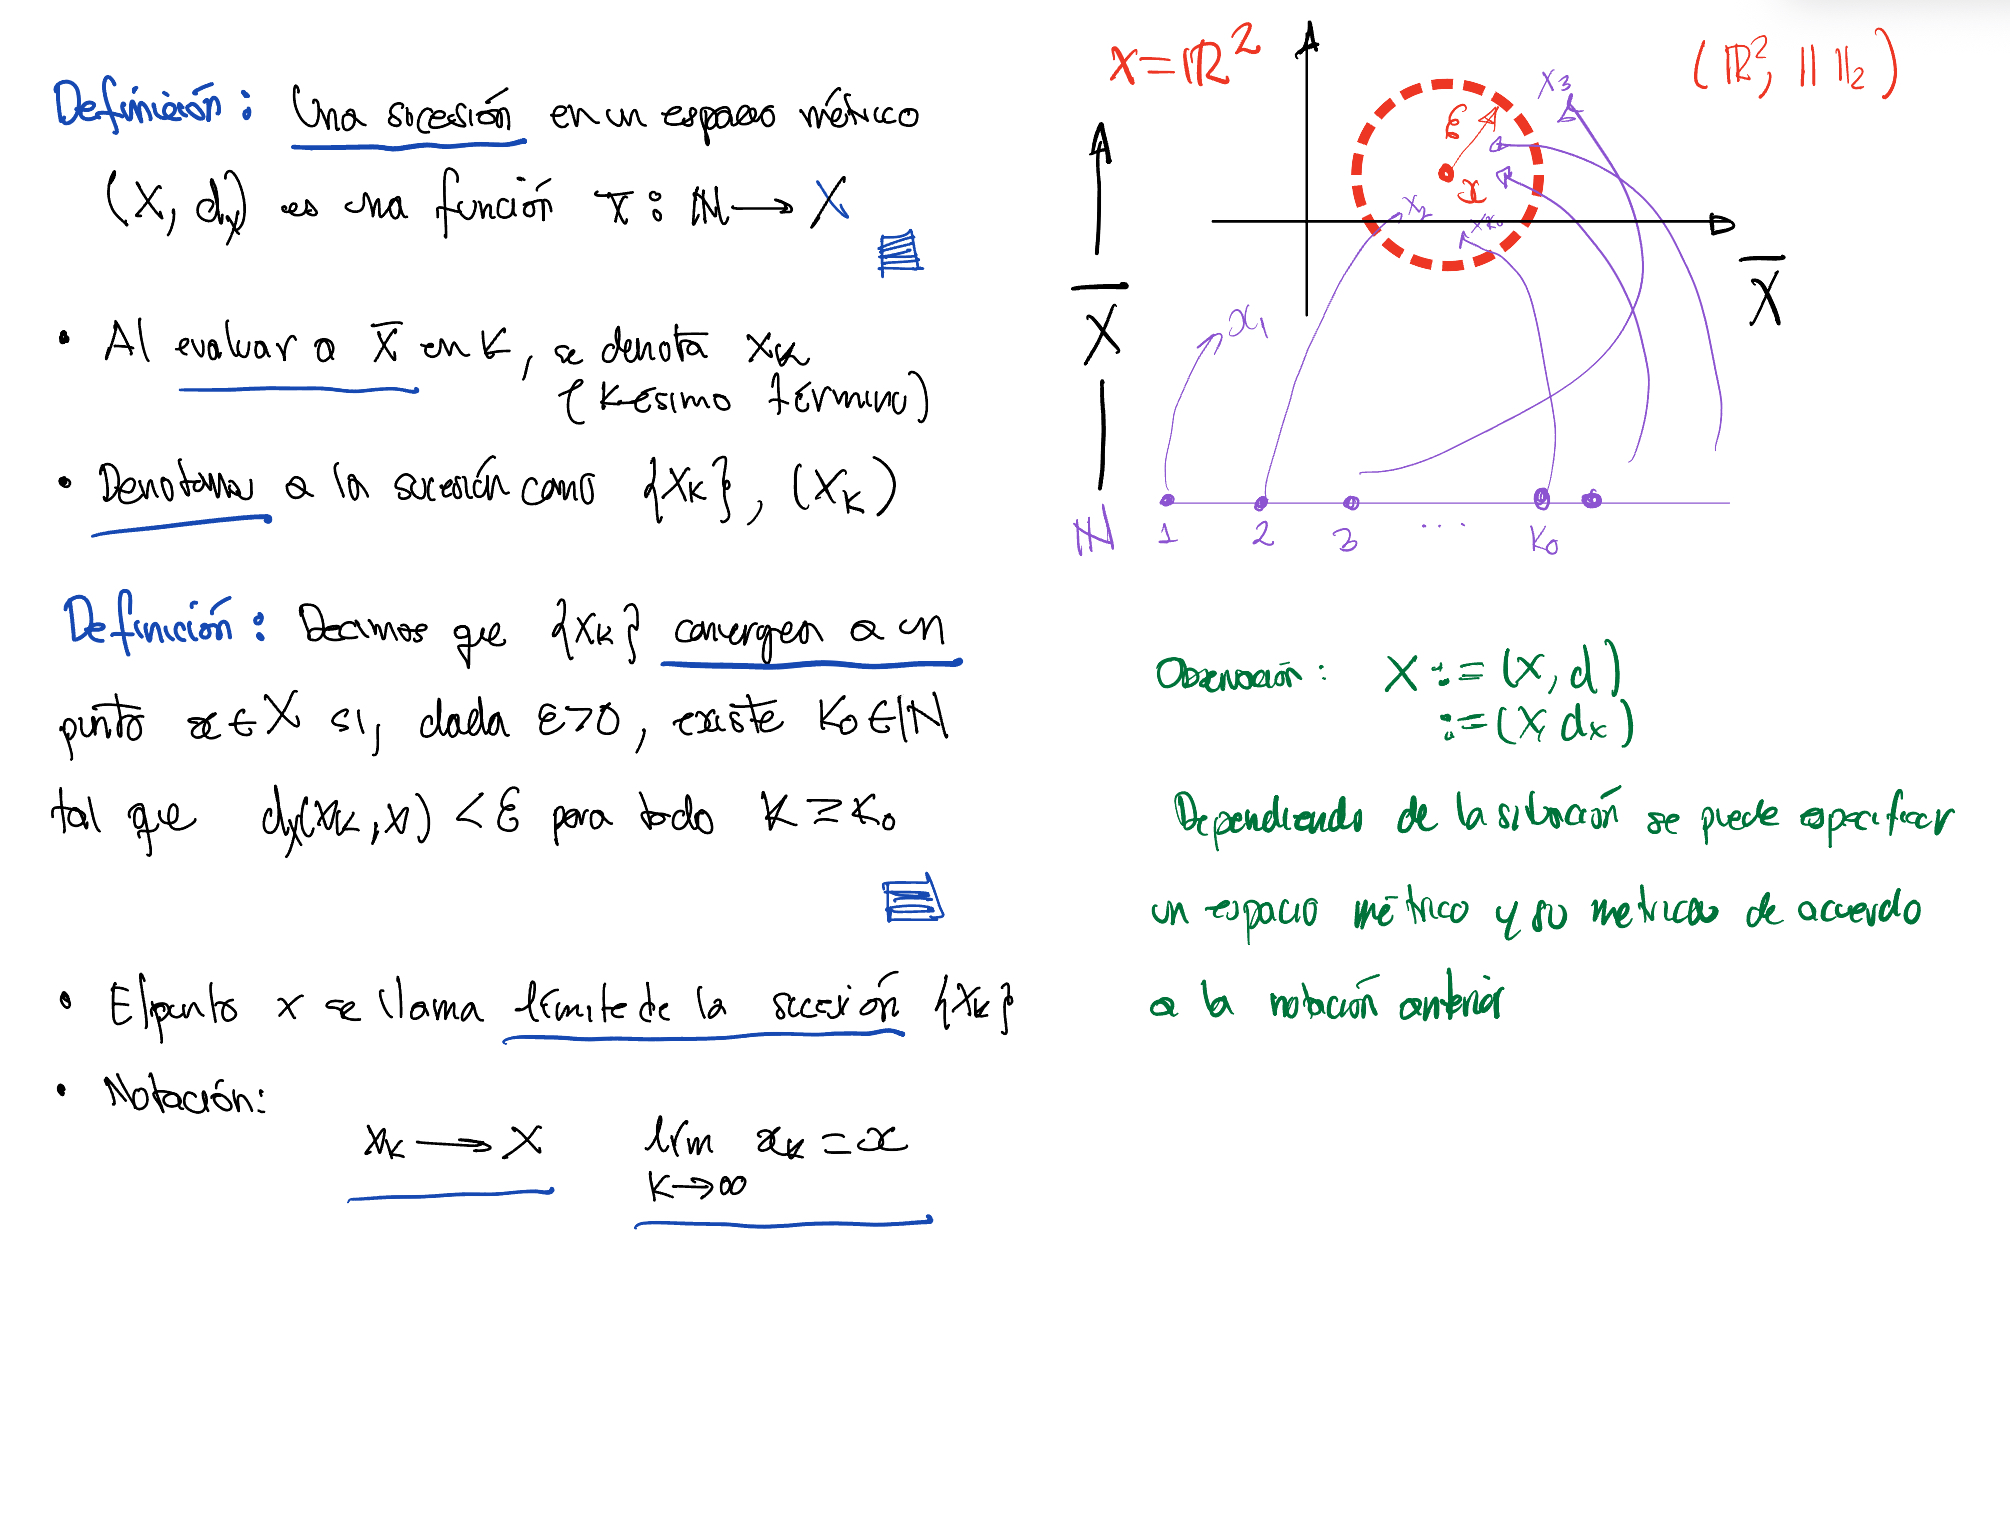 Definición: Una sucesión en un espacio métrico
(X, dₓ) es una función x̄ : ℕ → X
• Al evaluar a x̄ en K, se denota x_K
(K-ésimo término)
• Denotamos a la sucesión como {x_K}, (x_K)
Definición: Decimos que {x_K} converge a un
punto x ∈ X si, dada ε>0, existe K₀ ∈ ℕ
tal que dₓ(x_K, x) < ε para todo K ≥ K₀
• El punto x se llama límite de la sucesión {x_K}
• Notación:
x_K → x lím x_K = x
K→∞
X = ℝ² (ℝ², || ||₂)
x₃
ε
x
x₂
x_K₀
X̄
X̄
x₁
ℕ 1 2 3 ... K₀
Observación: X := (X, d)
:= (X, dₓ)
Dependiendo de la situación se puede especificar
un espacio métrico y su métrica de acuerdo
a la notación anterior